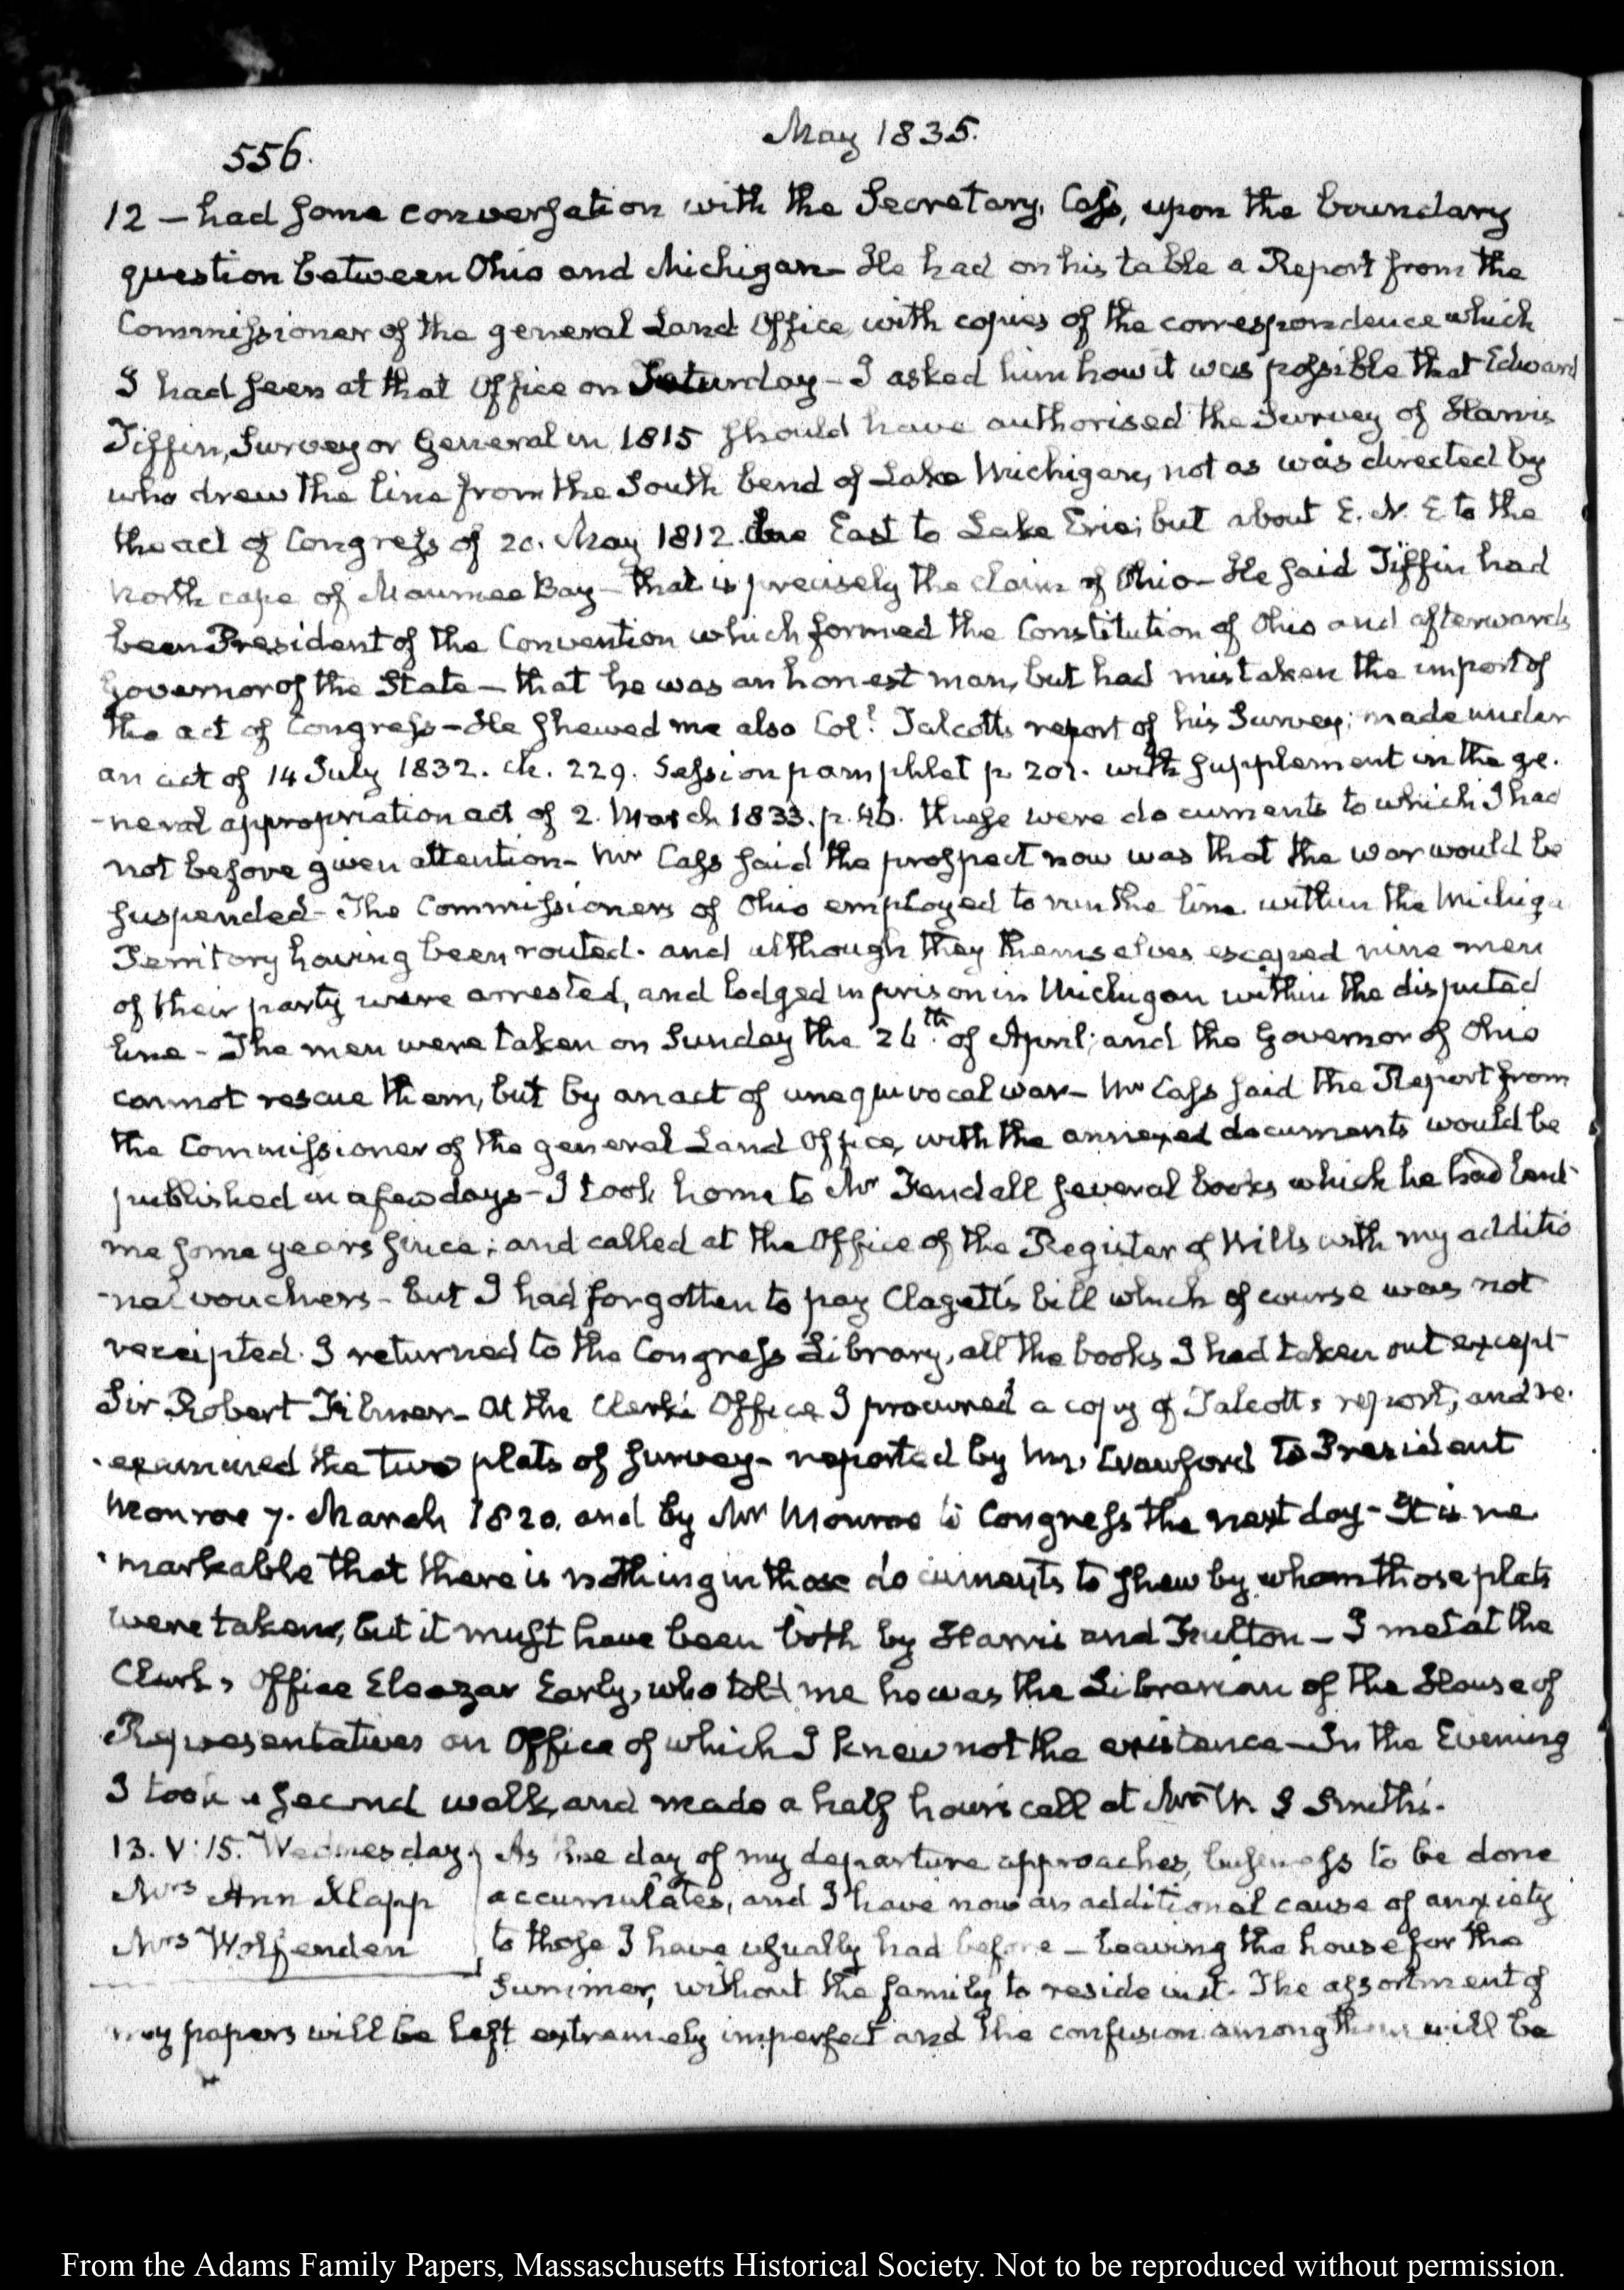 556.
May 1835.
12 — had some conversation with the Secretary, Cass, upon the boundary
question between Ohio and Michigan — He had on his table a Report from the
Commissioner of the general Land Office, with copies of the correspondence which
I had seen at that Office on Saturday — I asked him how it was possible that Edward
Tiffin, Surveyor General in 1815 should have authorised the Survey of Harris
who drew the line from the South bend of Lake Michigan, not as was directed by
the act of Congress of 20. May 1812. due East to Lake Erie; but about E. N. E to the
North cape of Maumee Bay — that is precisely the claim of Ohio — He said Tiffin had
been President of the Convention which formed the Constitution of Ohio and afterwards
Governor of the State — that he was an honest man, but had mistaken the import of
the act of Congress — He shewed me also Coll. Talcott's report of his Survey; made under
an act of 14 July 1832. ch. 229. Session pamphlet p 201. with supplement in the ge-
-neral appropriation act of 2. March 1833. p. 46. these were documents to which I had
not before given attention — Mr Cass said the prospect now was that the war would be
suspended — The Commissioners of Ohio employed to run the line within the Michiga
Territory having been routed. and although they themselves escaped nine men
of their party were arrested, and lodged in prison in Michigan within the disputed
line — The men were taken on Sunday the 26th. of April; and the Governor of Ohio
cannot rescue them, but by an act of unequivocal war — Mr Cass said the Report from
the Commissioner of the general Land Office, with the annexed documents would be
published in a few days — I took home to Mr Fendall several books which he had lent
me some years since; and called at the Office of the Register of Wills with my additio
-nal vouchers — but I had forgotten to pay Clagett's bill which of course was not
receipted. I returned to the Congress Library, all the books I had taken out except
Sir Robert Filmer — At the Clerk's Office I procured a copy of Talcott's report, and re-
-examined the two plats of survey — reported by Mr. Crawford to President
Monroe 7. March 1820. and by Mr Monroe to Congress the next day — It is re
-markable that there is nothing in those documents to shew by whom those plats
were taken, but it must have been both by Harris and Fulton — I met at the
Clerk's Office Eleazar Early, who told me he was the Librarian of the House of
Representatives an Office of which I knew not the existence — In the Evening
I took a second walk, and made a half hour's call at Mrs W. S Smith's.
13. V:15. Wednesday. As the day of my departure approaches, business to be done
Mrs Ann Klapp accumulates, and I have now an additional cause of anxiety
Mrs Wolfenden to those I have usually had before — Leaving the house for the
Summer, without the family to reside in it. The assortment of
my papers will be left extremely imperfect and the confusion among them will be
From the Adams Family Papers, Massachusetts Historical Society. Not to be reproduced without permission.